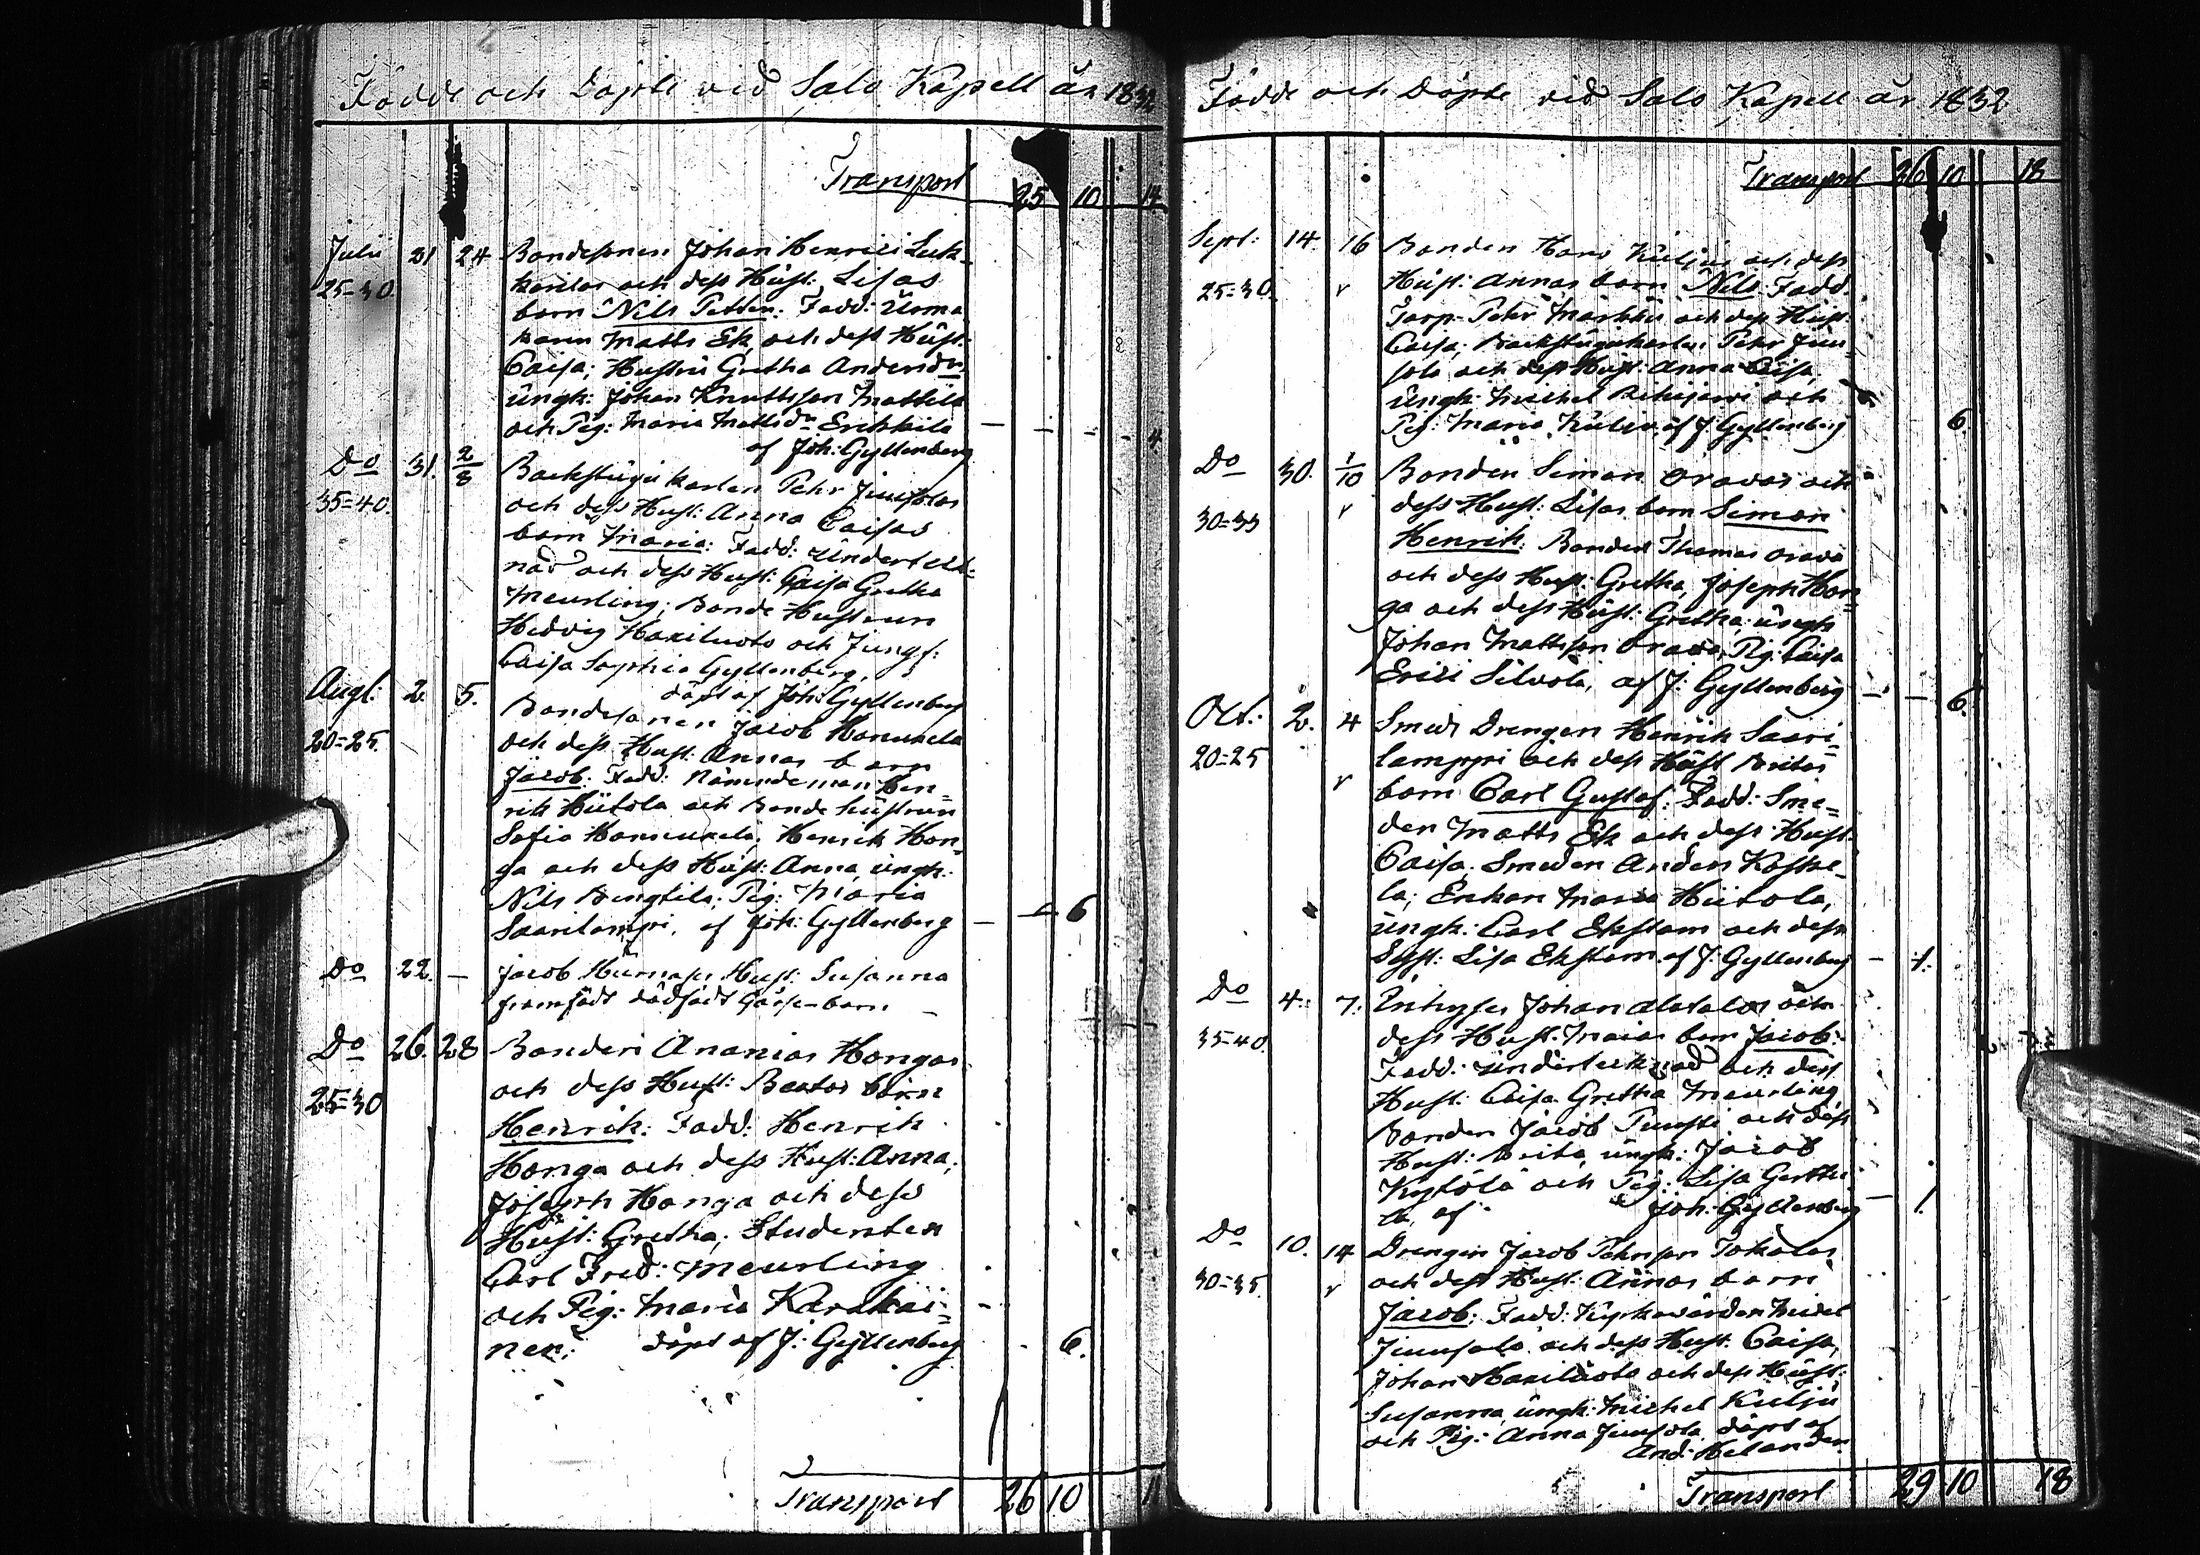 Födde och Döpte vid Salo Kapell år 1832
Transport 25 10 17
Julii 21 24 Bondesonen Johan Henrici Luk-
25=30. karilas och dess Hust: Lisas
barn Nils Petter. Fadd:
Matts Ek och dess Hust:
Caisa; Hustru Gretha Andersdr
ungk: Johan Knuttsson Mattila
och Pig: Maria Mattsdr Erkkilä
af Joh: Gyllenberg 4.
Do 31. 2/8 Backstugu karlen Pehr Junsolas
35=40. och dess Hust: Anna Caisas
barn Maria: Fadd: Underteck-
nad och dess Hust: Caisa Gretha
Meurling; Bonde Hustrun
Hedvig Hariluoto och Jungf:
Caisa Sophia Gyllenberg,
döpt af Joh: Gyllenberg
Augt: 2. 5. Bondesonen Jacob Hanukela
20=25. och dess Hust: Annas barn
Jacob. Fadd: Nämndeman Hen-
rik Hiitola och Bonde hustrun
Sofia Hanukela, Henrik Hon-
ga och dess Hust: Anna, ungk:
Nils Bengtila; Pig: Maria
Saarilampi, af Joh: Gyllenberg 6
Do 22. Jacob Hust: Susanna
framfödt dödfödt Gosse-barn
Do 26. 28 Bonden Ananias Hongas
25=30 och dess Hust: Beatas barn
Henrik: Fadd: Henrik
Honga och dess Hust: Anna;
Joseph Honga och dess
Hust: Gretha; Studenten
Carl Fred: Meurling
och Pig: Maria Karakai-
nen; döpt af J: Gyllenberg 6.
Transport 26 10
Födde och Döpte vid Salo Kapell år 1832
Transport 26 10 18
Sept: 14. 16 Bonden Hans Kuljus och dess
25=30. Hust: Annas barn Nils. Fadd:
Torp. Pehr Markku och dess Hust:
Caisa; Backstugukarlen Pehr Jun-
sola och dess Hust: Anna Caisa,
ungk: Michel och
Pig: Maria af J Gyllenberg 6.
Do 30. 1/10 Bonden Simon Oravas och
30=35 dess Hust: Lisas barn Simon
Henrik: Bonden Thomas Orava
och dess Hust: Gretha, Joseph Hon-
ga och dess Hust: Gretha, ungk
Johan Mattsson Orava, Pig: Caisa
Erici Silvola, af J: Gyllenberg 6.
Oct: 2. 4 Smeds Drengen Henrik Saari-
20=25 lampi och dess Hust Britas
barn Carl Gustaf: Fadd: Sme-
den Matts Ek och dess Hust:
Caisa, Smeden Anders Koske-
la; Enkan Maria Hiitola,
ungk: Carl Ekstam och dess
Syst: Lisa Ekstam af J: Gyllenberg 1.
Do 4. 7. Inhyses Johan Alatalos och
35=40. dess Hust: Maias barn Jacob:
Fadd: Undertecknad och dess
Hust: Caisa Gretha Meurling,
Bonden Jacob Punsti och dess
Hust: Brita, ungk: Jacob
Kytölä och Pig: Lisa Gertti-
la, af Joh: Gyllenberg 1.
Do 10. 14 Drengen Jacob Pehrsson Tokolas
30=35. och dess Hust: Annas barn
Jacob: Fadd: Kyrkovärden Michel
Junsola och dess Hust: Caisa,
Johan Hariluoto och dess Hust:
Susanna, ungk: Michel Kulju
och Pig: Anna Junsola, döpt af
And: Helander
Transport 29 10 18